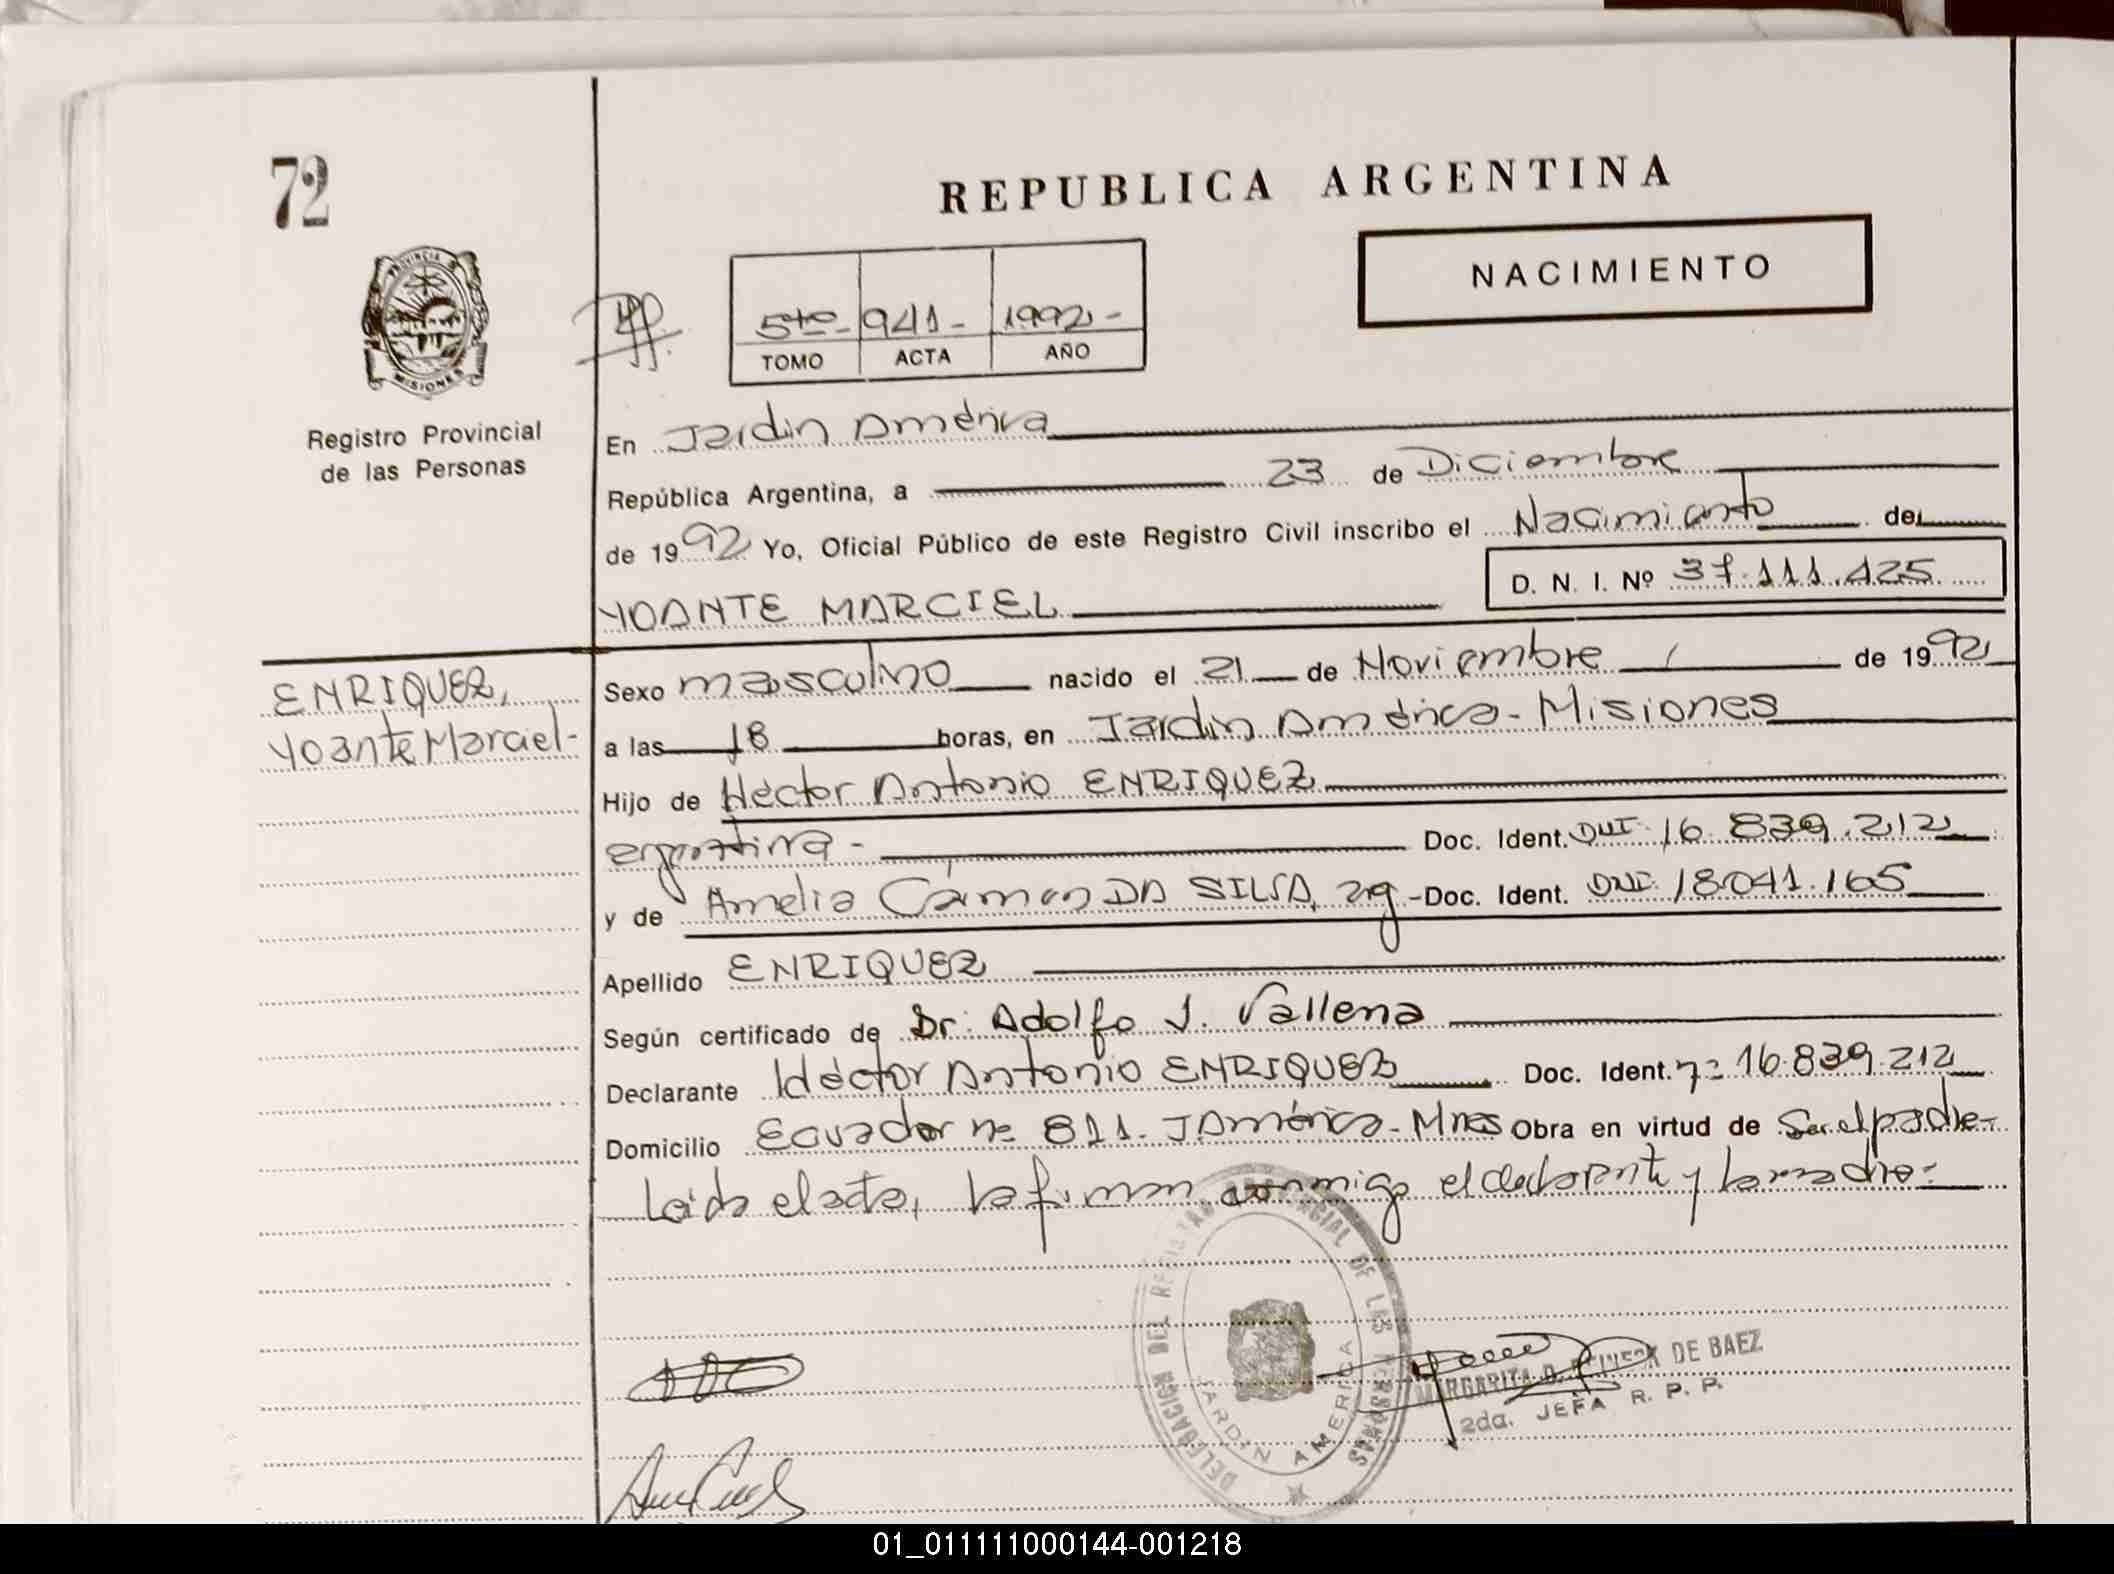 72
REPUBLICA ARGENTINA
NACIMIENTO
PROVINCIA D
MISIONES
5to - 941 - 1992 -
TOMO ACTA AÑO
Registro Provincial
de las Personas
En Jardin América
República Argentina, a 23 de Diciembre
de 1992 Yo, Oficial Público de este Registro Civil inscribo el Nacimiento de
D. N. I. Nº 37.111.425
YOANTE MARCIEL
ENRIQUEZ,
Yoante Marciel-
Sexo masculino nacido el 21 de Noviembre de 1992
a las 18 horas, en Jardin América - Misiones
Hijo de Héctor Antonio ENRIQUEZ
argentina - Doc. Ident. DNI 16.839.212
y de Amelia Cármen DA SILVA, arg - Doc. Ident. DNI. 18.041.165
Apellido ENRIQUEZ
Según certificado de Dr. Adolfo J. Vallena
Declarante Héctor Antonio ENRIQUEZ Doc. Ident. nº 16.839.212
Domicilio Ecuador nº 811. J.América - Mnes Obra en virtud de Ser el padre -
Leida el acta, la firman conmigo el declarante y la madre =
DELEGACION DEL REGISTRO PROVINCIAL DE LAS PERSONAS
JARDIN AMERICA
MARGARITA D. DE BAEZ
2da. JEFA R. P. P.
01_011111000144-001218